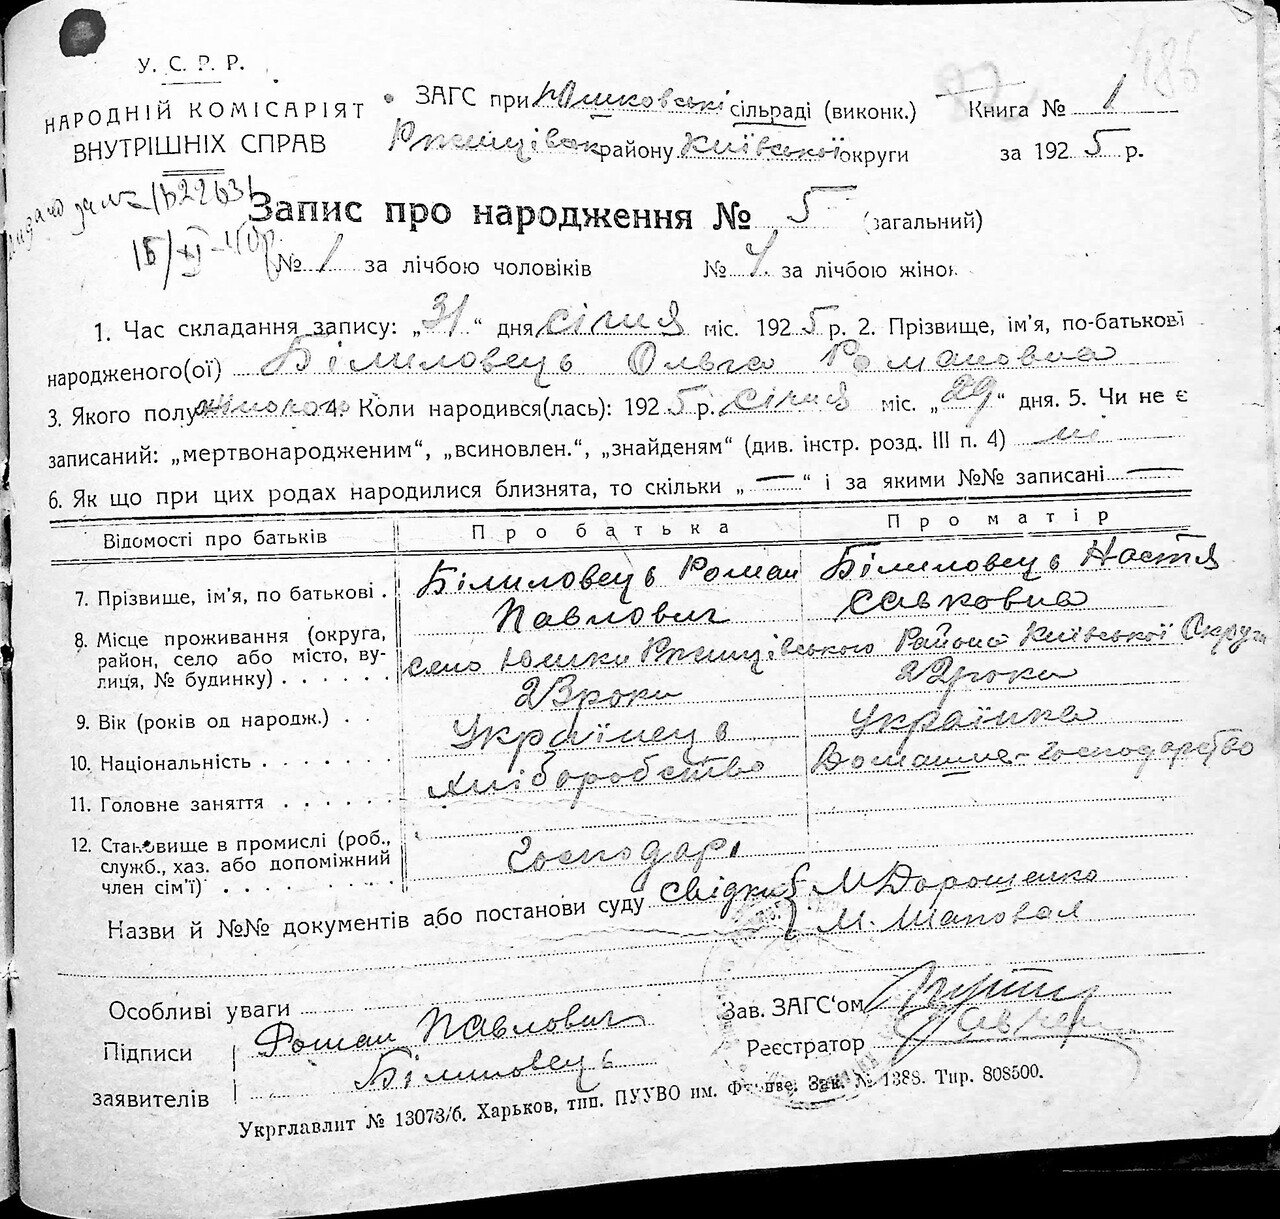 186
У. С. Р. Р.
НАРОДНІЙ КОМІСАРІЯТ
ВНУТРІШНІХ СПРАВ
ЗАГС при Юшковські сільраді (виконк.)
Ржищівськ району Київської округи
Книга № 1
за 1925 р.
Запис про народження № 5 (загальний)
№ 1 за лічбою чоловіків № 4. за лічбою жінок
1. Час складання запису: „31" дня січня міс. 1925 р. 2. Прізвище, ім'я, по-батькові
народженого(ої) Білиловець Ольга Романовна
3. Якого полу жіного 4. Коли народився(лась): 1925 р. січня міс. „29" дня. 5. Чи не є
записаний: „мертвонародженим", „всиновлен.", „знайденям" (див. інстр. розд. III п. 4) ні
6. Як що при цих родах народилися близнята, то скільки „—" і за якими №№ записані —
Відомості про батьків Про батька Про матір
7. Прізвище, ім'я, по батькові . Білиловець Роман Павлович Білиловець Настя Савковна
8. Місце проживання (округа,
район, село або місто, ву-
лиця, № будинку) . . . . . . село Юшки Ржищівського Району Київської Округи
9. Вік (років од народж.) . . 23 роки 22 роки
10. Національність . . . . . . . Українець Українка
11. Головне заняття . . . . . . Хліборобство Домашне-господарство
12. Становище в промислі (роб.,
служб., хаз. або допоміжний
член сім'ї) . . . . . . . . . Господарь
Назви й №№ документів або постанови суду свідки { М Дорошенко
М. Шаповал
Особливі уваги
Зав. ЗАГС'ом
Підписи Роман Павлович
заявителів Білиловець
Реєстратор
Укрглавлит № 13073/б. Харьков, тип. ПУУВО им. Фрунзе. Зак. № 1388. Тир. 808500.